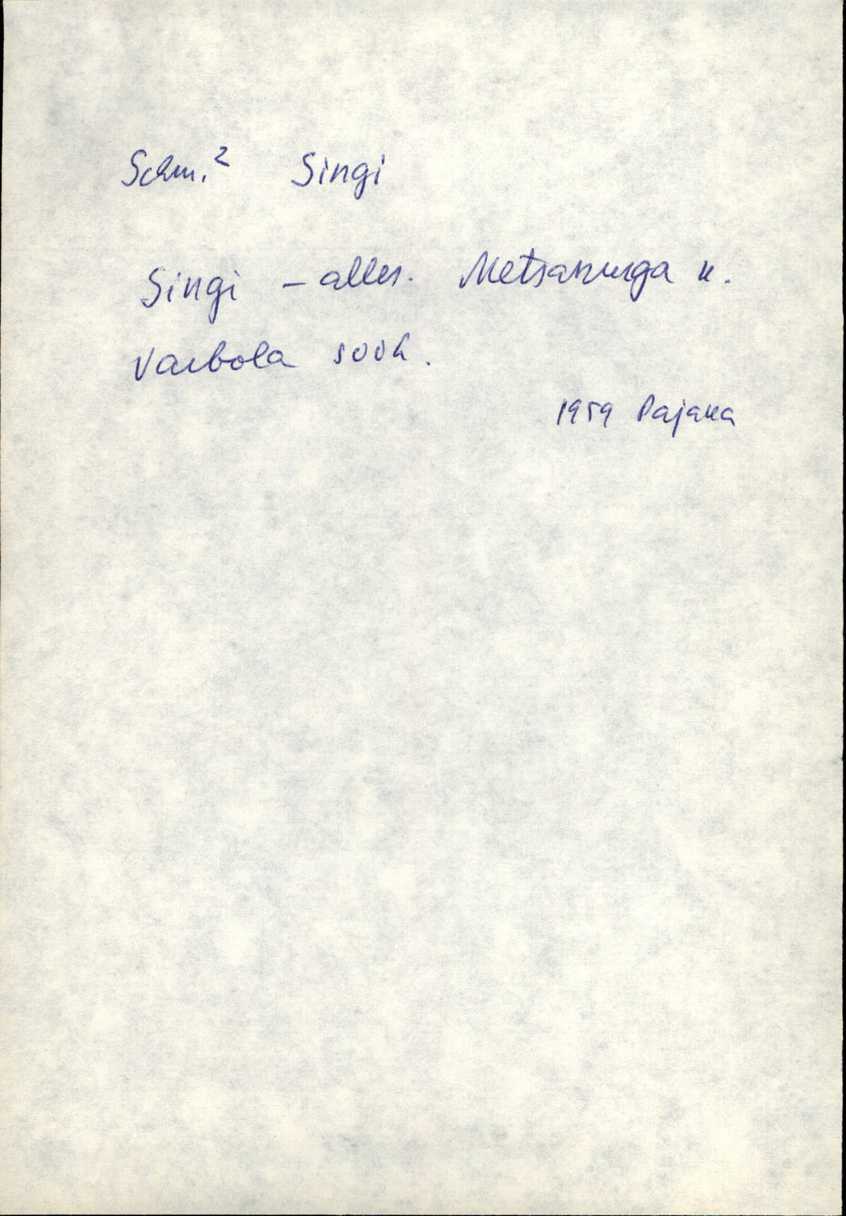 Schm.² Singi
Singi – alles. Metsanurga k.
Varbola sook.
1959 Pajana